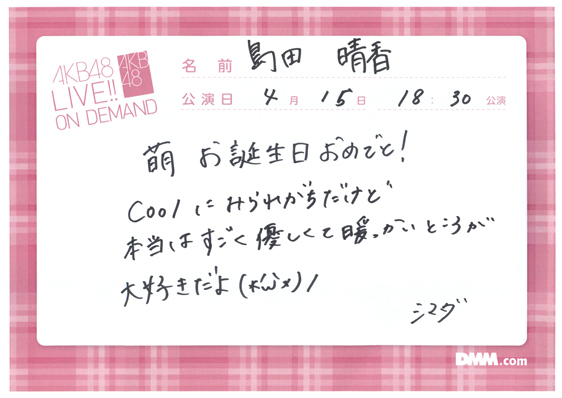 AKB48
LIVE!!
ON DEMAND
AKB
48
名前 島田 晴香
公演日 4月 15日 18:30公演
萌 お誕生日おめでと!
Coolにみられがちだけど
本当はすごく優しくて暖っかいところが
大好きだよ
シマダ
DMM.com